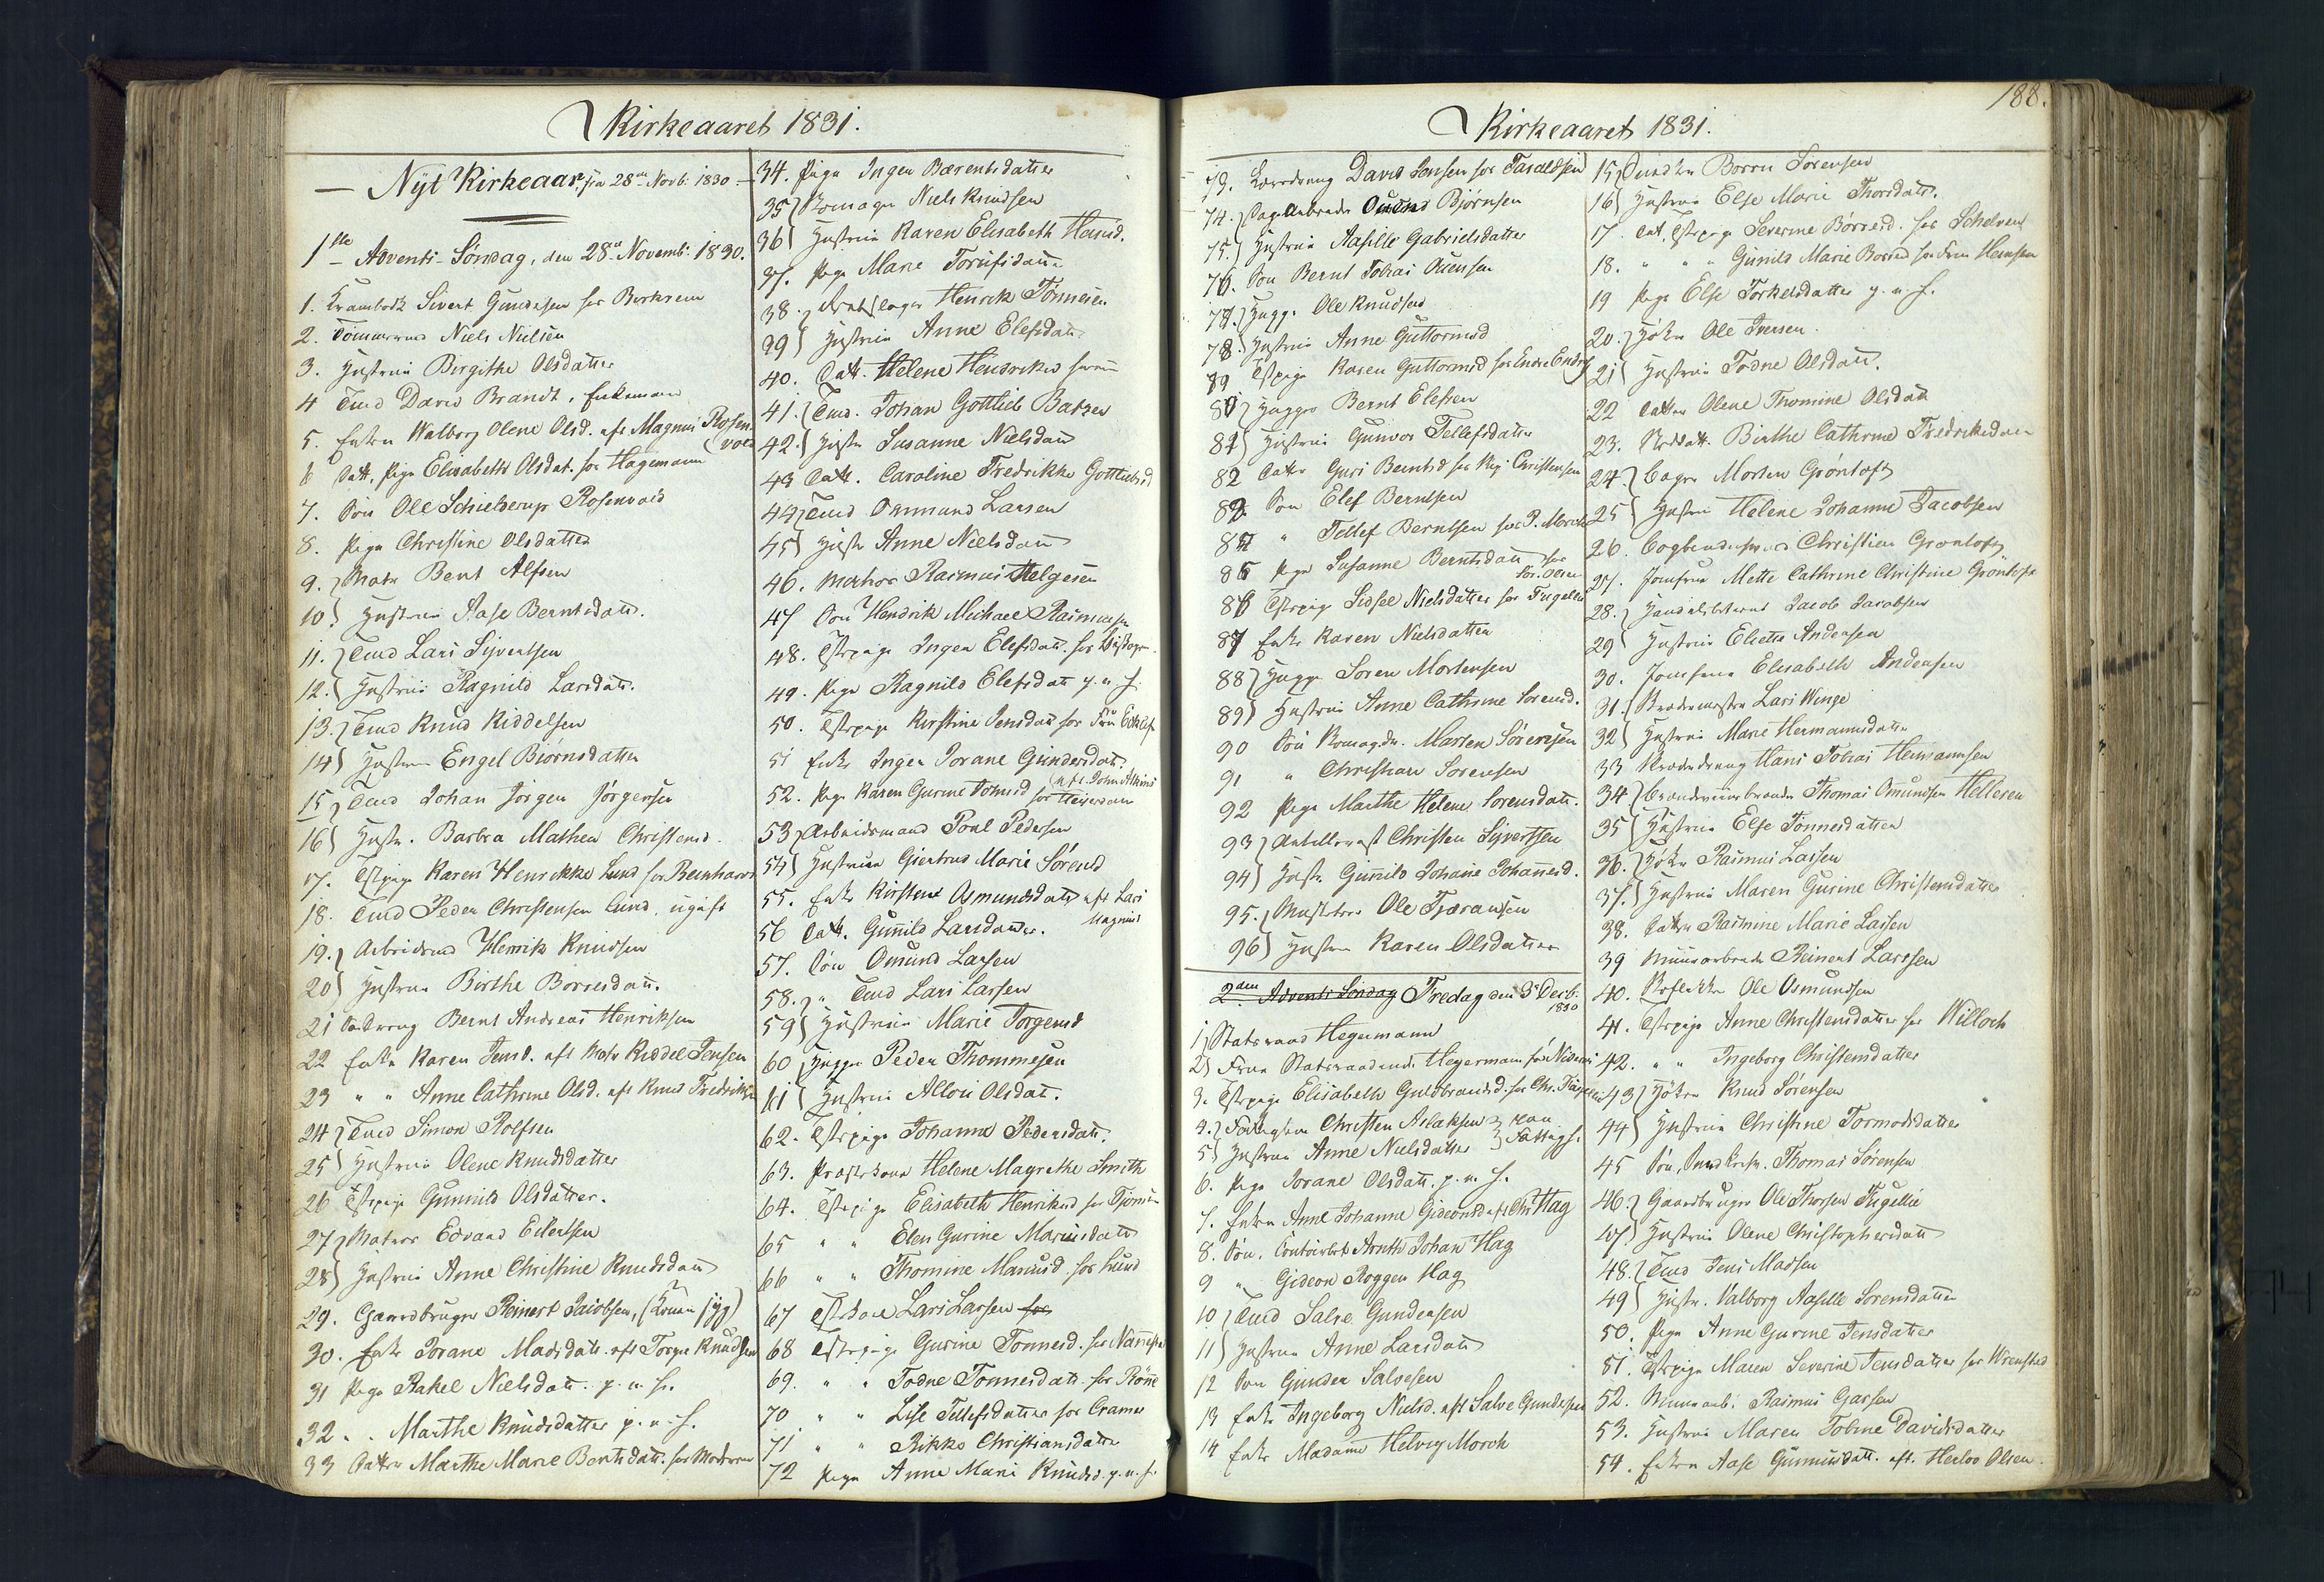 Kirkeaaret 1831.
Nyt Kirkeaar, fra 28de Novb: 1830.
1ste Advents-Søndag, den 28de Novemb: 1830.
1. Sivert Gundersen for Birkrem
2. Tømmermd Niels Nielsen
3. Hustrue Birgithe Olsdatter
4 Tmd David Brandt, Enkemand
5. Enken Walborg Olene Olsd. eft Magnus Rosenvold
6 Datt. Pige Elisabeth Olsdat. for Hagemann
7. Søn Ole Schielderup Rosenvold
8. Pige Christine Olsdatter
9. Matr Bent Alfsen
10 Hustrue Aase Berntsdatt.
11. Tmd Lars Sivertsen
12. Hustrue Ragnild Larsdatt.
13. Tmd Knud Kiddelsen
14 Hustrue Engel Biørnsdatter
15 Tmd Johan Jørgen Jørgensen
16 Hustr. Barbra Mathea Christensd.
17. Tstpige Karen Henrikke Lund for Reinhardt
18. Tmd Peder Christensen Lund, ugift
19. Arbeidsmd Henrik Knudsen
20 Hustrue Birthe Børresdatt.
21 Bernt Andreas Henriksen
22 Enke Karen Jensd. eft Matr Kiddel Jensen
23 " " Anne Cathrine Olsd. eft Knud Fredriksen
24 Tmd Simon Rolfsen
25 Hustrue Olene Knudsdatter
26 Tstpige Gunnild Olsdatter.
27 Matros Edvard Eilertsen
28 Hustrue Anne Christine Knudsdatt
29. Gaardbruger Reinert Jacobsen, (Konen syg)
30. Enke Jorane Madsdatt. eft Torger Knudsen
31 Pige Rakel Nielsdatt. p. u. h.
32 " Marthe Knudsdatter p. u. h.
33 Datter Marthe Marie Berntsdatt. for Moderen
34. Pige Inger Bærentsdatter
35 Skomager Niels Knudsen
36 Hustrue Karen Elisabeth
37. Pige Marie
38. Henrik Tønnesen
39 Hustrue Anne Elefsdatt.
40. Datt. Helene Henriksd
41. Tmd. Johan Gottlieb Batzer
42. Hustr Susanne Nielsdatt
43 Datt. Caroline Fredrikke Gottliebsd
44 Tmd Osmund Larsen
45 Hustr Anne Nielsdatt
46. Matros Rasmus Helgesen
47 Søn Hendrik Michael Rasmussen
48. Tstpige Inger Elefsdatt. for
49. Pige Ragnild Elefsdatt p. u. h.
50. Tstpige Kirstine Jensdatt for Fru
51 Enke Inger Jorane Gundersdatt.
52. Pige Karen Gurine
53 Arbeidsmand Poul Pedersen
54 Hustrue Giertrud Marie Sørensd
55. Enke Kirstene Osmundsdatt eft Lars Magnus
56 Datt. Gunnild Larsdatter.
57. Søn Omund Larsen
58. " Tmd Lars Larsen
59 Hustrue Marie Torgersd
60 Hugger Peder Thommesen
61 Hustrue Alloi Olsdatt.
62. Tstpige Johanne Pedersdatt.
63. Helene Magrethe Smith
64. Tstpige Elisabeth Henriksd for
65 " " Elen Gurine Mariusdatt
66 " " Thomine Mariusd for Lund
67 Lars Larsen for
68 Tstpige Gurine Tønnesd. for
69. " " Todne Tønnesdatt for Rønne
70 " " Lise Tellefsdatter for Cramer
71 " " Rikke Christiansdatter
72 Pige Anne Marie Knudsd. p. u. h.
188.
Kirkeaaret 1831.
73. David Jensen for Taraldsen
74. Bjørnsen
75. Hustrue Aasille Gabrielsdatter
76. Søn Bernt Tobias
77. Hugg. Ole Knudsen
78. Hustrue Anne Guttormsd
79 Tstpige Karen Guttormsd for Endre Endresen
80 Hugger Bernt Elefsen
81 Hustrue Gunvor Tellefsdatter
82 Datter Guri Berntsd for Christensen
83 Søn Elef Berntsen
84 " Tellef Berntsen for P. Morch
85 Pige Susanne Berntsdatt for
86 Tstpige Sidsel Nielsdatter for Fugellie
87 Enke Karen Nielsdatter
88 Hugger Søren Mortensen
89 Hustrue Anne Cathrine Sørensd.
90 Søn Marten Sørensen
91 " Christian Sørensen
92 Pige Marthe Helene Sørensdatt.
93 Christen Sivertsen
94 Hustr Gunnild Johanne Johannesd.
95. Ole
96 Hustrue Karen Olsdatter
2den Advents Søndag Fredag den 3 Decb: 1830
1 Statsraad Hegermann
2 Frue Statsraadinde Hegermann
3. Tstpige Elisabeth Guldbrandsd. for Chr.
4. Christen Aslaksen paa
5 Hustrue Anne Nielsdatter Fattigh.
6. Pige Jorane Olsdatt. p. u. h.
7. Enken Anne Johanne Gideonsd eft Chr Hag
8. Søn. Arnth Johan Hag
9 " Gideon Roggen Hag
10 Tmd Salve Gundersen
11 Hustrue Anne Larsdatt
12 Søn Gunder Salvesen
13 Enke Ingeborg Nielsd. eft Salve Gundersen
14 Enke Madame Helvig Morch
15 Børre Sørensen
16 Hustrue Else Marie Thorsdatt.
17. Datt. Tstpige Severine Børresd. for
18. " " " Gunild Marie Børresd for Fru
19 Pige Else Torkelsdatter p. u. h.
20. Ole Iversen.
21 Hustrue Todne Olsdatt.
22 Datter Olene Thomine Olsdatt
23. Birthe Cathrine Fredriksdatter
24. Bager Morten Grøntoft
25 Hustrue Helene Johanne Jacobsen
26. Christian Grøntoft
27. Jomfrue Mette Cathrine Christine Grøntoft
28. Jacob Jacobsen
29 Hustrue Elsette Andersen
30. Jomfrue Elisabeth Andersen
31. Lars Winge
32 Hustrue Marie Hermannsdatter
33 Hans Tobias Hermannsen
34 Thomas Omundsen Helleren
35 Hustrue Else Tønnesdatter
36. Rasmus Larsen
37. Hustrue Maren Gurine Christensdatter
38. Datter Rasmine Marie Larsen
39 Muurarbeider Reinert Larsen
40. Ole Osmundsen
41. Tstpige Anne Christensdatter for Willoch
42. " " Ingeborg Christensdatter
43 Knud Sørensen
44 Hustrue Christine Tormodsdatter
45 Søn, Thomas Sørensen
46. Gaardbruger Ole Thorsen Fugellie
47. Hustrue Olene Christophersdatt
48. Tmd Jens Madsen
49 Hustr. Valborg Aasille Sørensdatter
50. Pige Anne Gurine Jensdatter
51. Tstpige Maren Severine Jensdatter for Wrensted
52. Muurarb: Rasmus
53. Hustrue Maren Tobine Davidsdatter
54. Enken Aase Gunnuldsdatt. eft. Herlov Olsen.